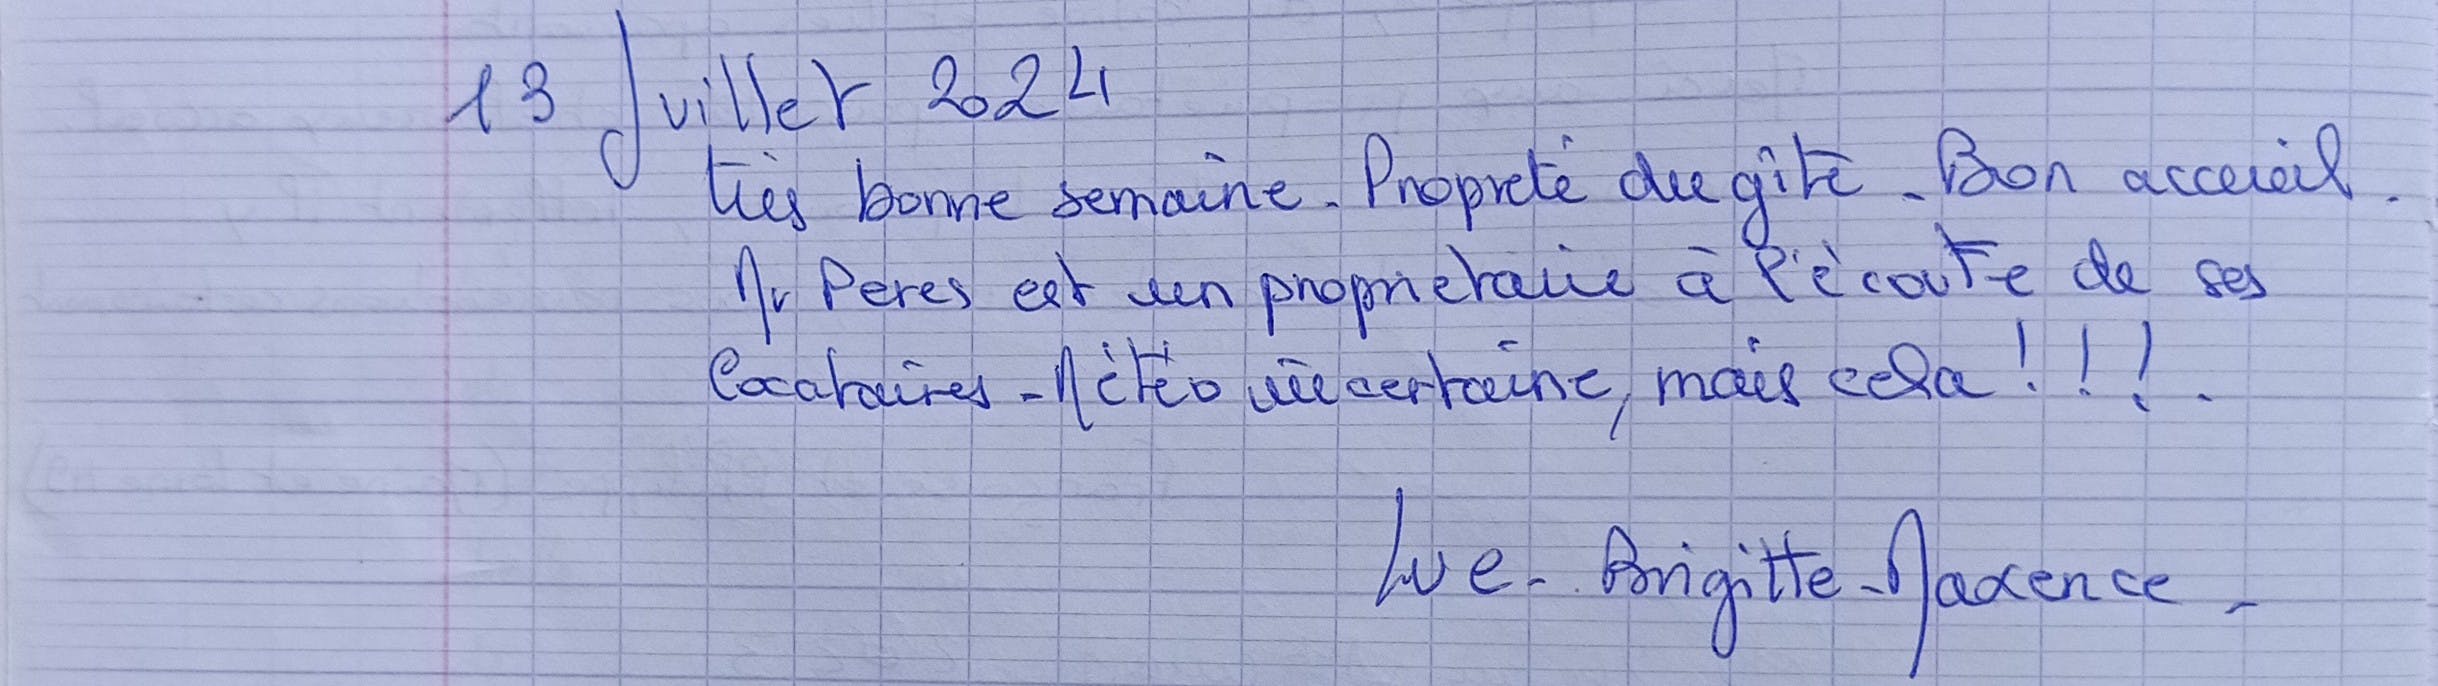 13 Juillet 2024
très bonne semaine. Propreté du gîte. Bon accueil.
Mr Peres est un propriétaire à l'écoute de ses
locataires - Météo incertaine, mais cela !!!.
- Brigitte - Maxence -